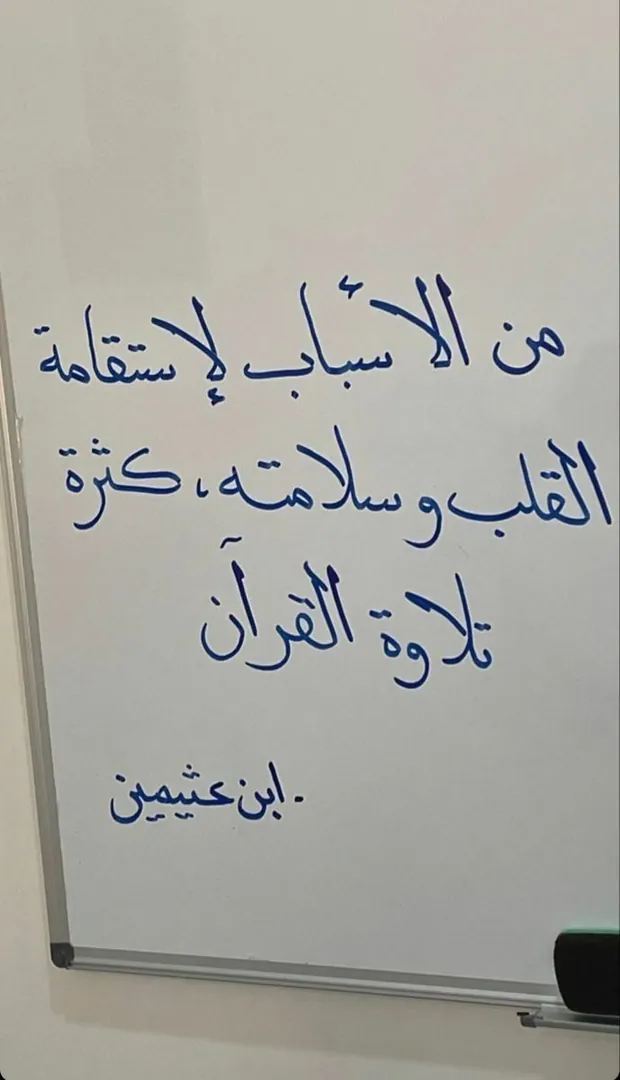 من الأسباب لإستقامة
القلب وسلامته، كثرة
تلاوة القرآن
. ابن عثيمين